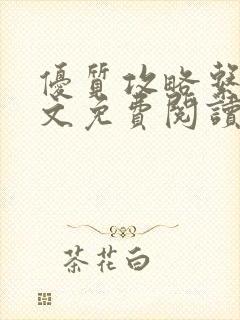 優質攻略繫
文免費閱讀
茶花白